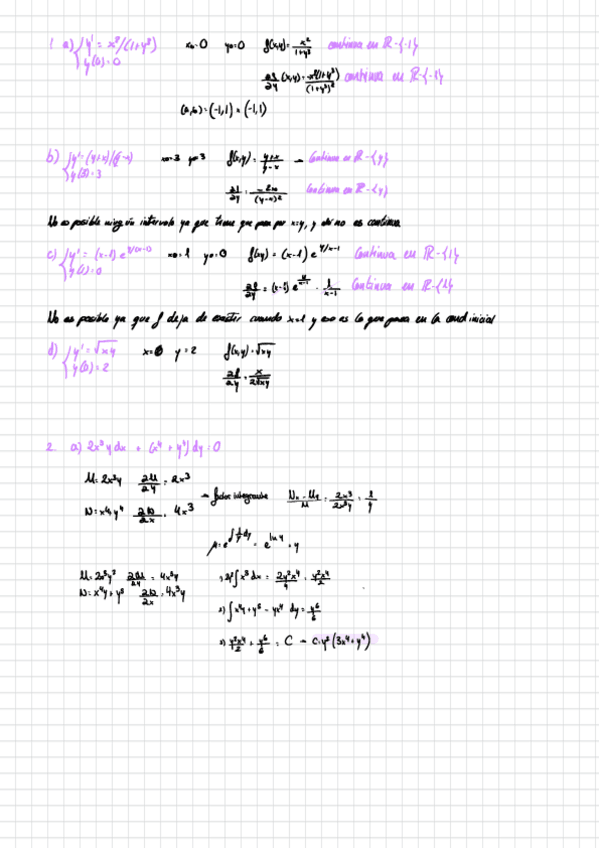 1. a) { y' = x²/(1+y³)   x₀=0   y₀=0   f(x,y) = x²/(1+y³)   continua en ℝ-{-1}
y(0)=0
∂f/∂y (x,y) =   continua en ℝ-{-1}
(a,b) = (-1,1) × (-1,1)
b) { y' = (y+x)/(y-x)   x₀=3   y₀=3   f(x,y) = (y+x)/(y-x) → Continua en ℝ-{y}
y(3)=3
∂f/∂y = -2x/(y-x)²   Continua en ℝ-{y}
No es posible ningún intervalo ya que tiene que pasar por x=y, y ahí no es continua
c) { y' = (x-1) e^(y/(x-1))   x₀=1   y₀=0   f(x,y) = (x-1) e^(y/x-1)   Continua en ℝ-{1}
y(1)=0
∂f/∂y = (x-1) e^(y/x-1) · 1/(x-1)   Continua en ℝ-{1}
No es posible ya que f deja de existir cuando x=1 y eso es lo que pasa en la cond inicial
d) { y' = √xy   x=0   y=2   f(x,y) = √xy
y(0)=2
∂f/∂y = x/(2√xy)
2. a) 2x³y dx + (x⁴ + y⁴) dy = 0
M = 2x³y   ∂M/∂y = 2x³
N = x⁴+y⁴   ∂N/∂x = 4x³
→ factor integrante   (Nx - My)/M = 2x³/2x³y = 1/y
μ = e^(∫ 1/y dy) = e^(ln y) = y
M = 2x³y²   ∂M/∂y = 4x³y
N = x⁴y + y⁵   ∂N/∂x = 4x³y
1) 2y² ∫ x³ dx = 2y²x⁴/4 = y²x⁴/2
2) ∫ x⁴y + y⁵ - yx⁴ dy = y⁶/6
3) y²x⁴/2 + y⁶/6 = C → C = y²(3x⁴ + y⁴)